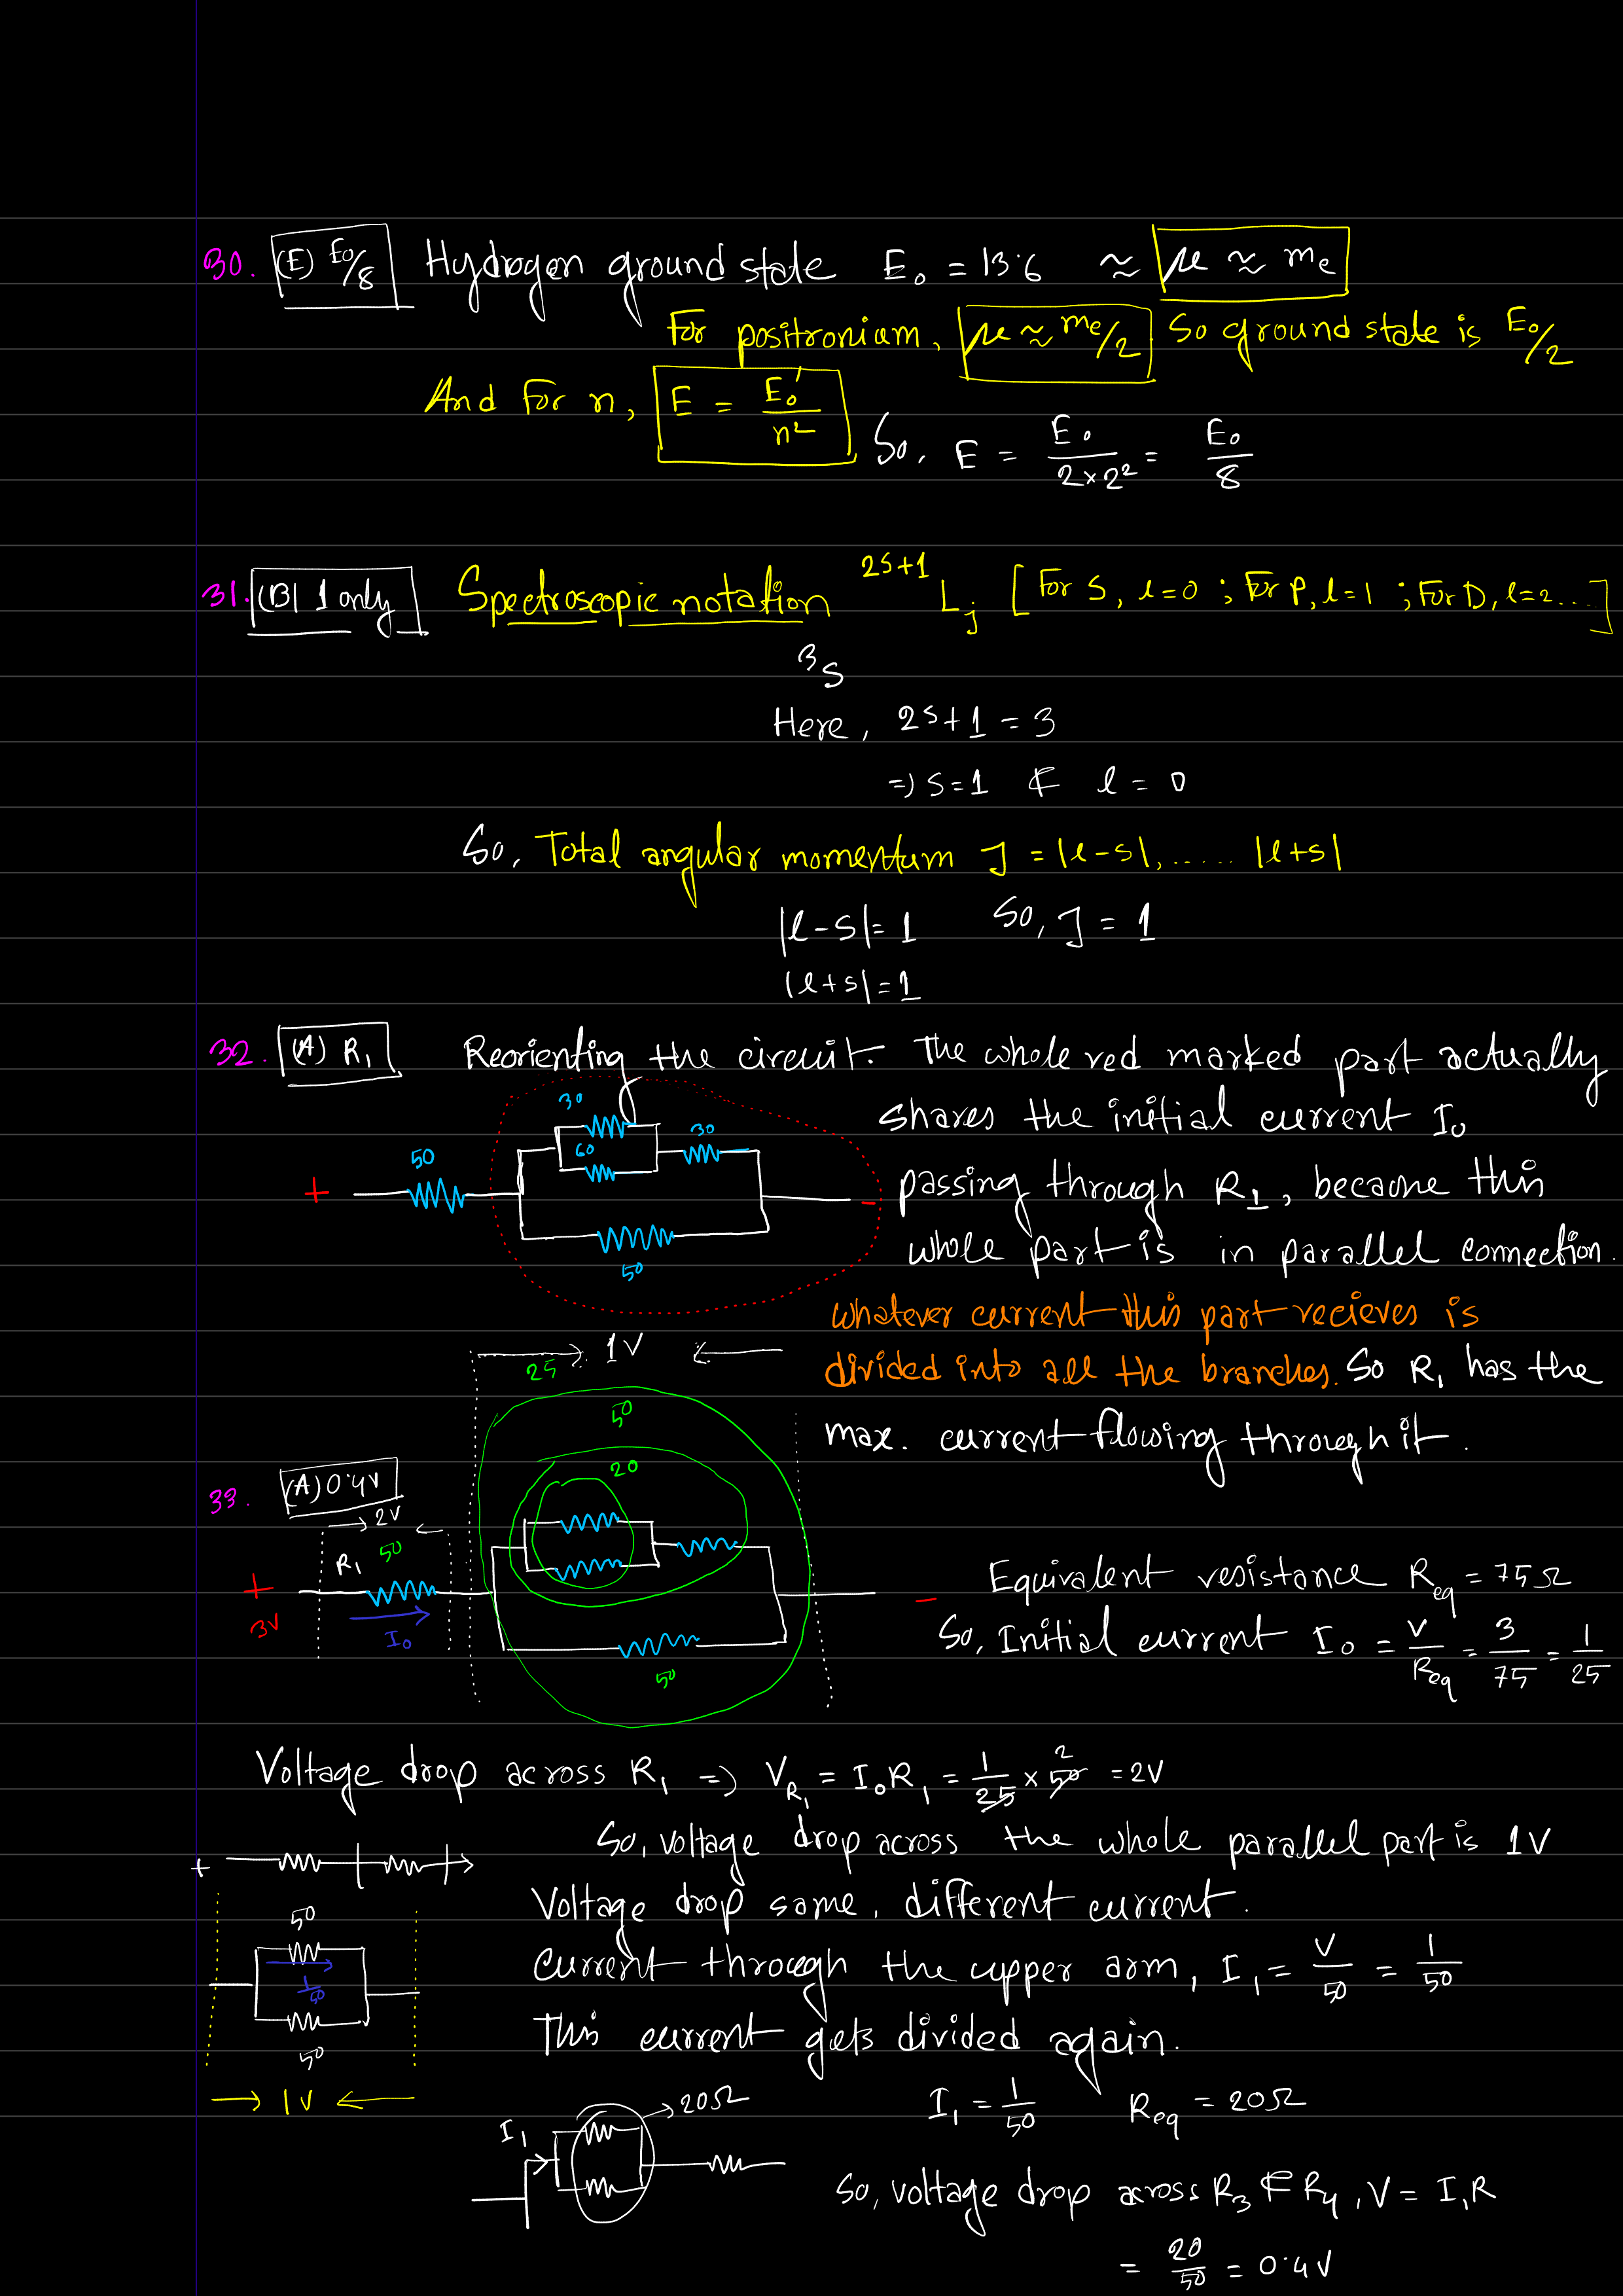 30. (E) E₀/8 Hydrogen ground state E₀ = 13.6 ≈ μ ≈ mₑ
For positronium, μ ≈ mₑ/2 So ground state is E₀/2
And for n, E = E₀'/n² So, E = E₀/2×2² = E₀/8
31. (B) 1 only Spectroscopic notation ²ˢ⁺¹L_j [For S, l=0 ; For P, l=1 ; For D, l=2....]
³S
Here, 2s+1 = 3
=> s=1 & l = 0
So, Total angular momentum J = |l-s|,...... |l+s|
|l-s|= 1 So, J = 1
|l+s|=1
32. (A) R₁ Reorienting the circuit. The whole red marked part actually
shares the initial current I₀
passing through R₁, because this
whole part is in parallel connection.
30
60
30
50
+
-
50
whatever current this part recieves is
divided into all the branches. So R₁ has the
max. current flowing through it.
1V
25
50
20
33. (A) 0.4V
2V
R₁ 50
+
3V
I₀
50
-
Equivalent resistance R_eq = 75Ω
So, Initial current I₀ = V/R_eq = 3/75 = 1/25
Voltage drop across R₁ => V_R₁ = I₀R₁ = 1/25 × 50 2 = 2V
So, voltage drop across the whole parallel part is 1V
+
Voltage drop same, different current.
50
1/50
50
1V
Current through the upper arm, I₁ = V/50 = 1/50
This current gets divided again.
I₁
20Ω
I₁ = 1/50 R_eq = 20Ω
So, voltage drop across R₃ & R₄, V = I₁R
= 20/50 = 0.4V